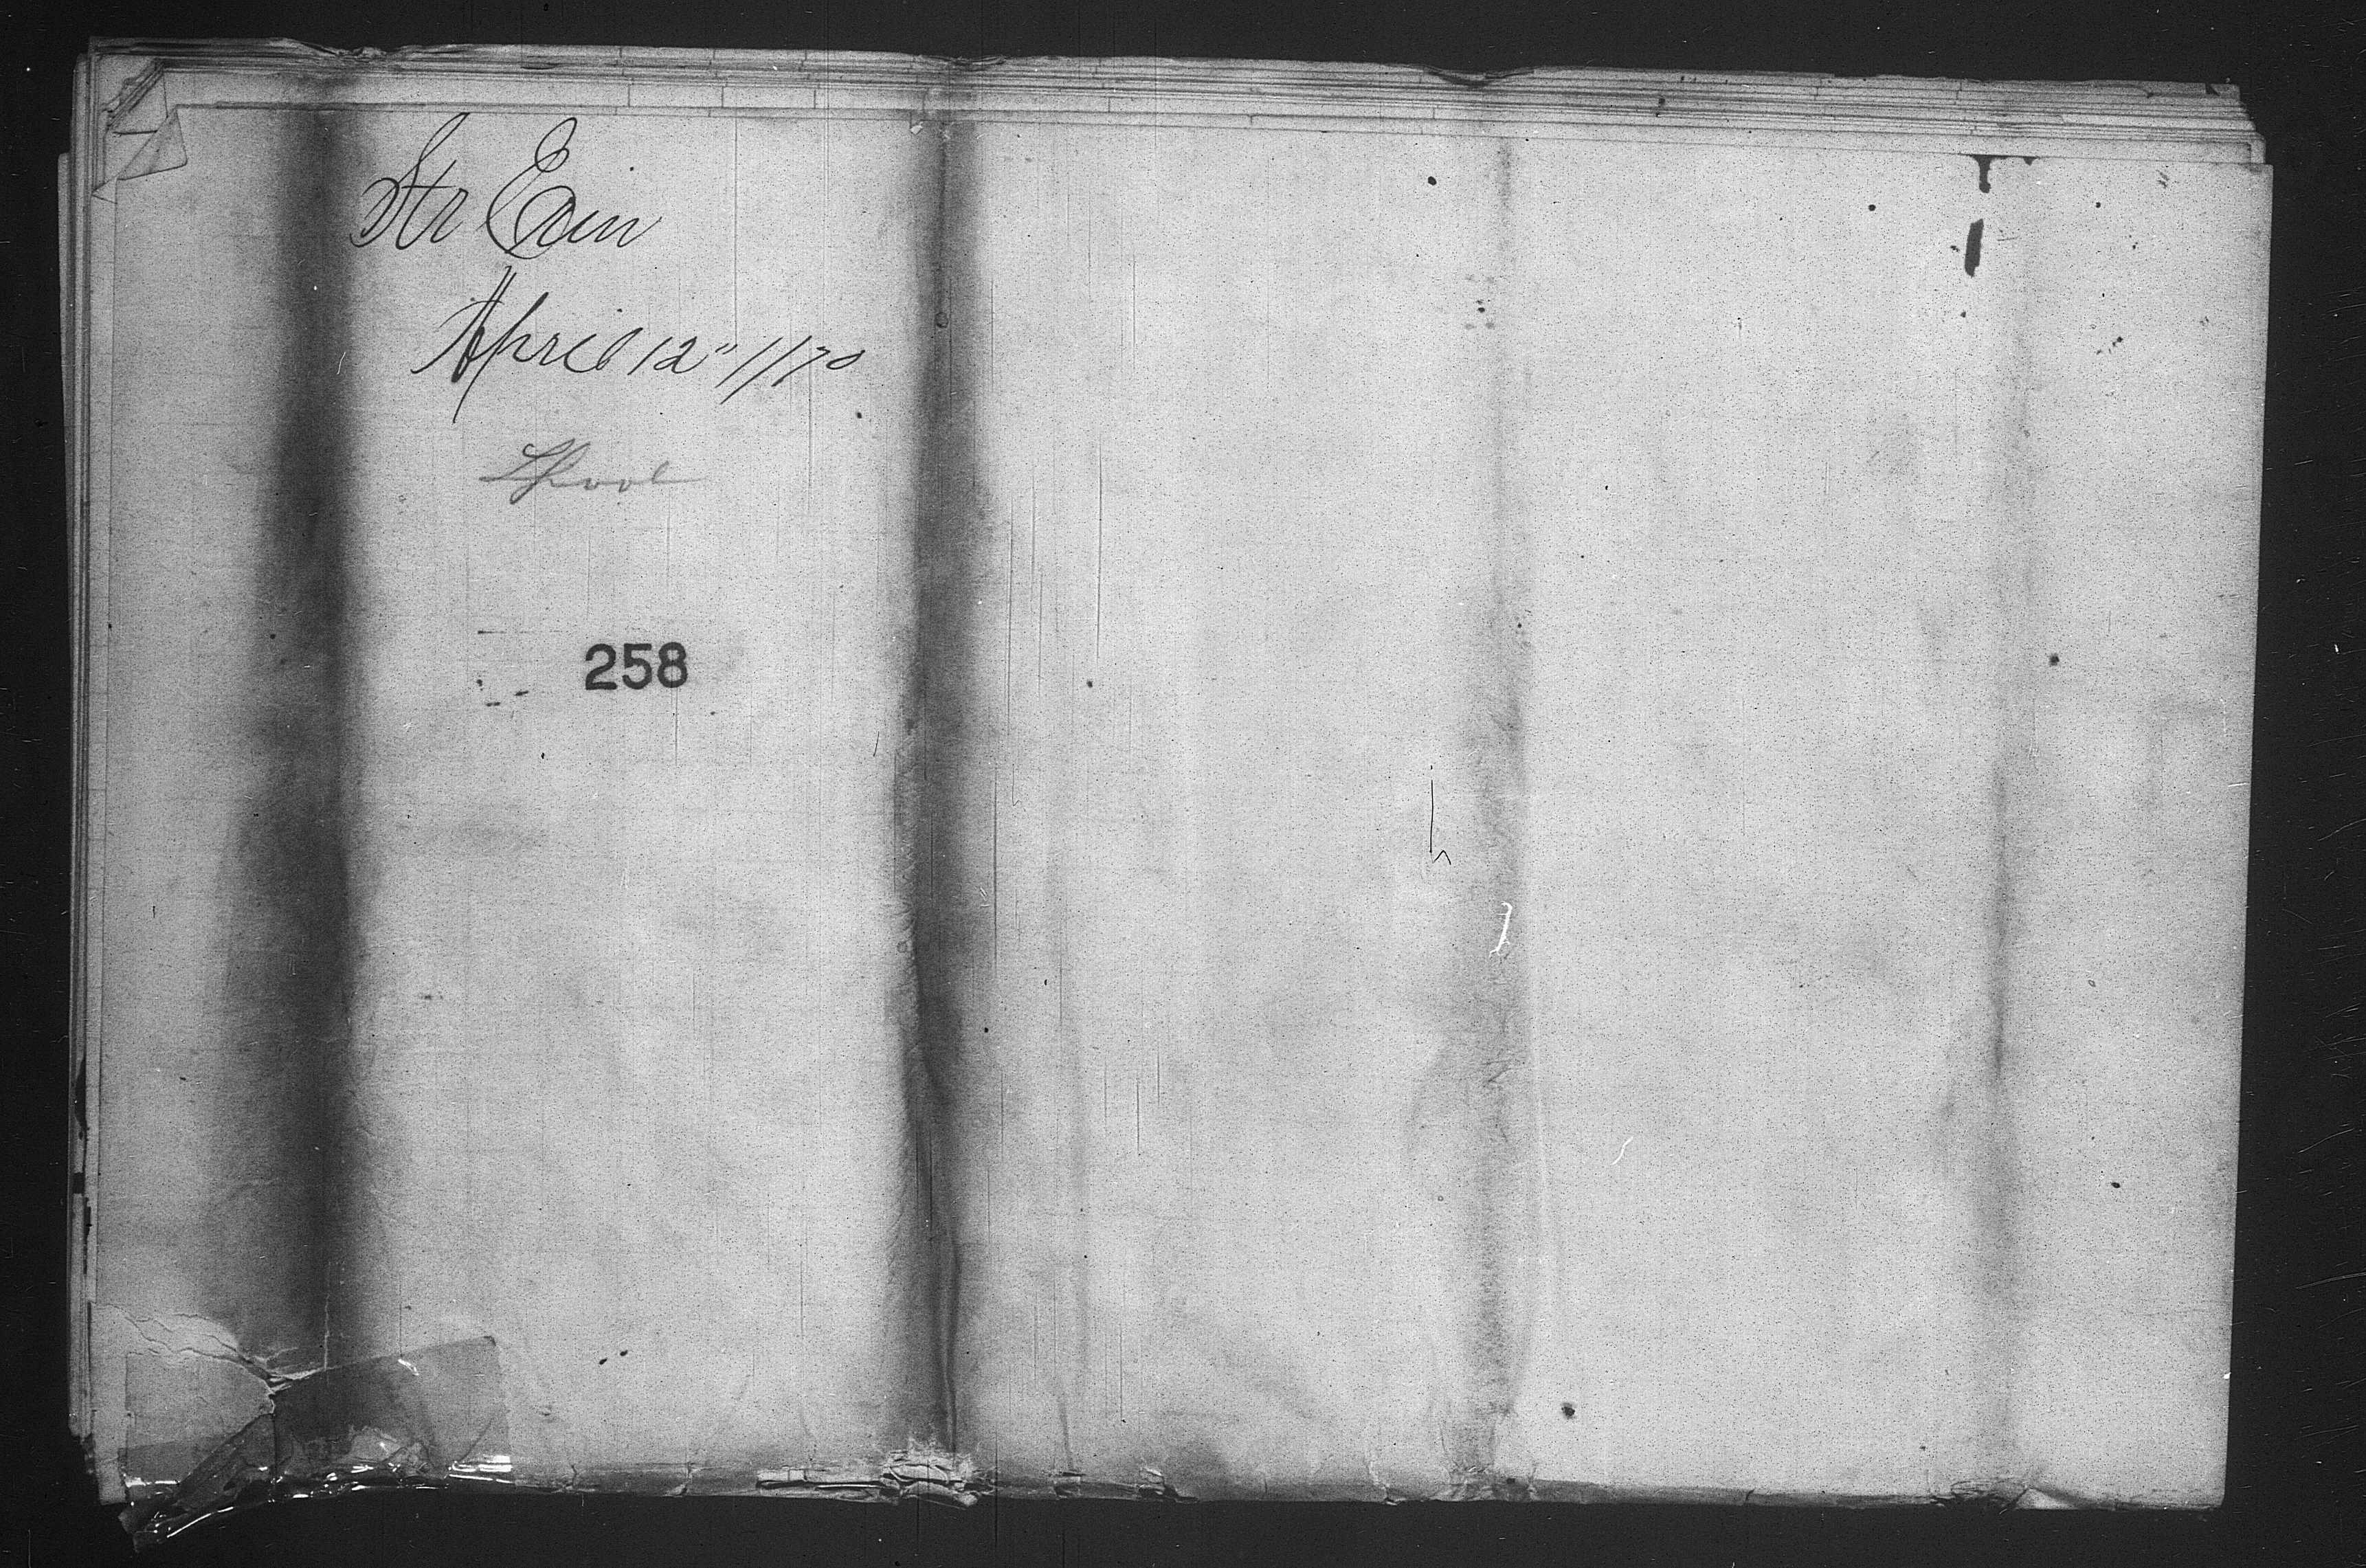 Str Erin
April 12" 1870
Lpool
258